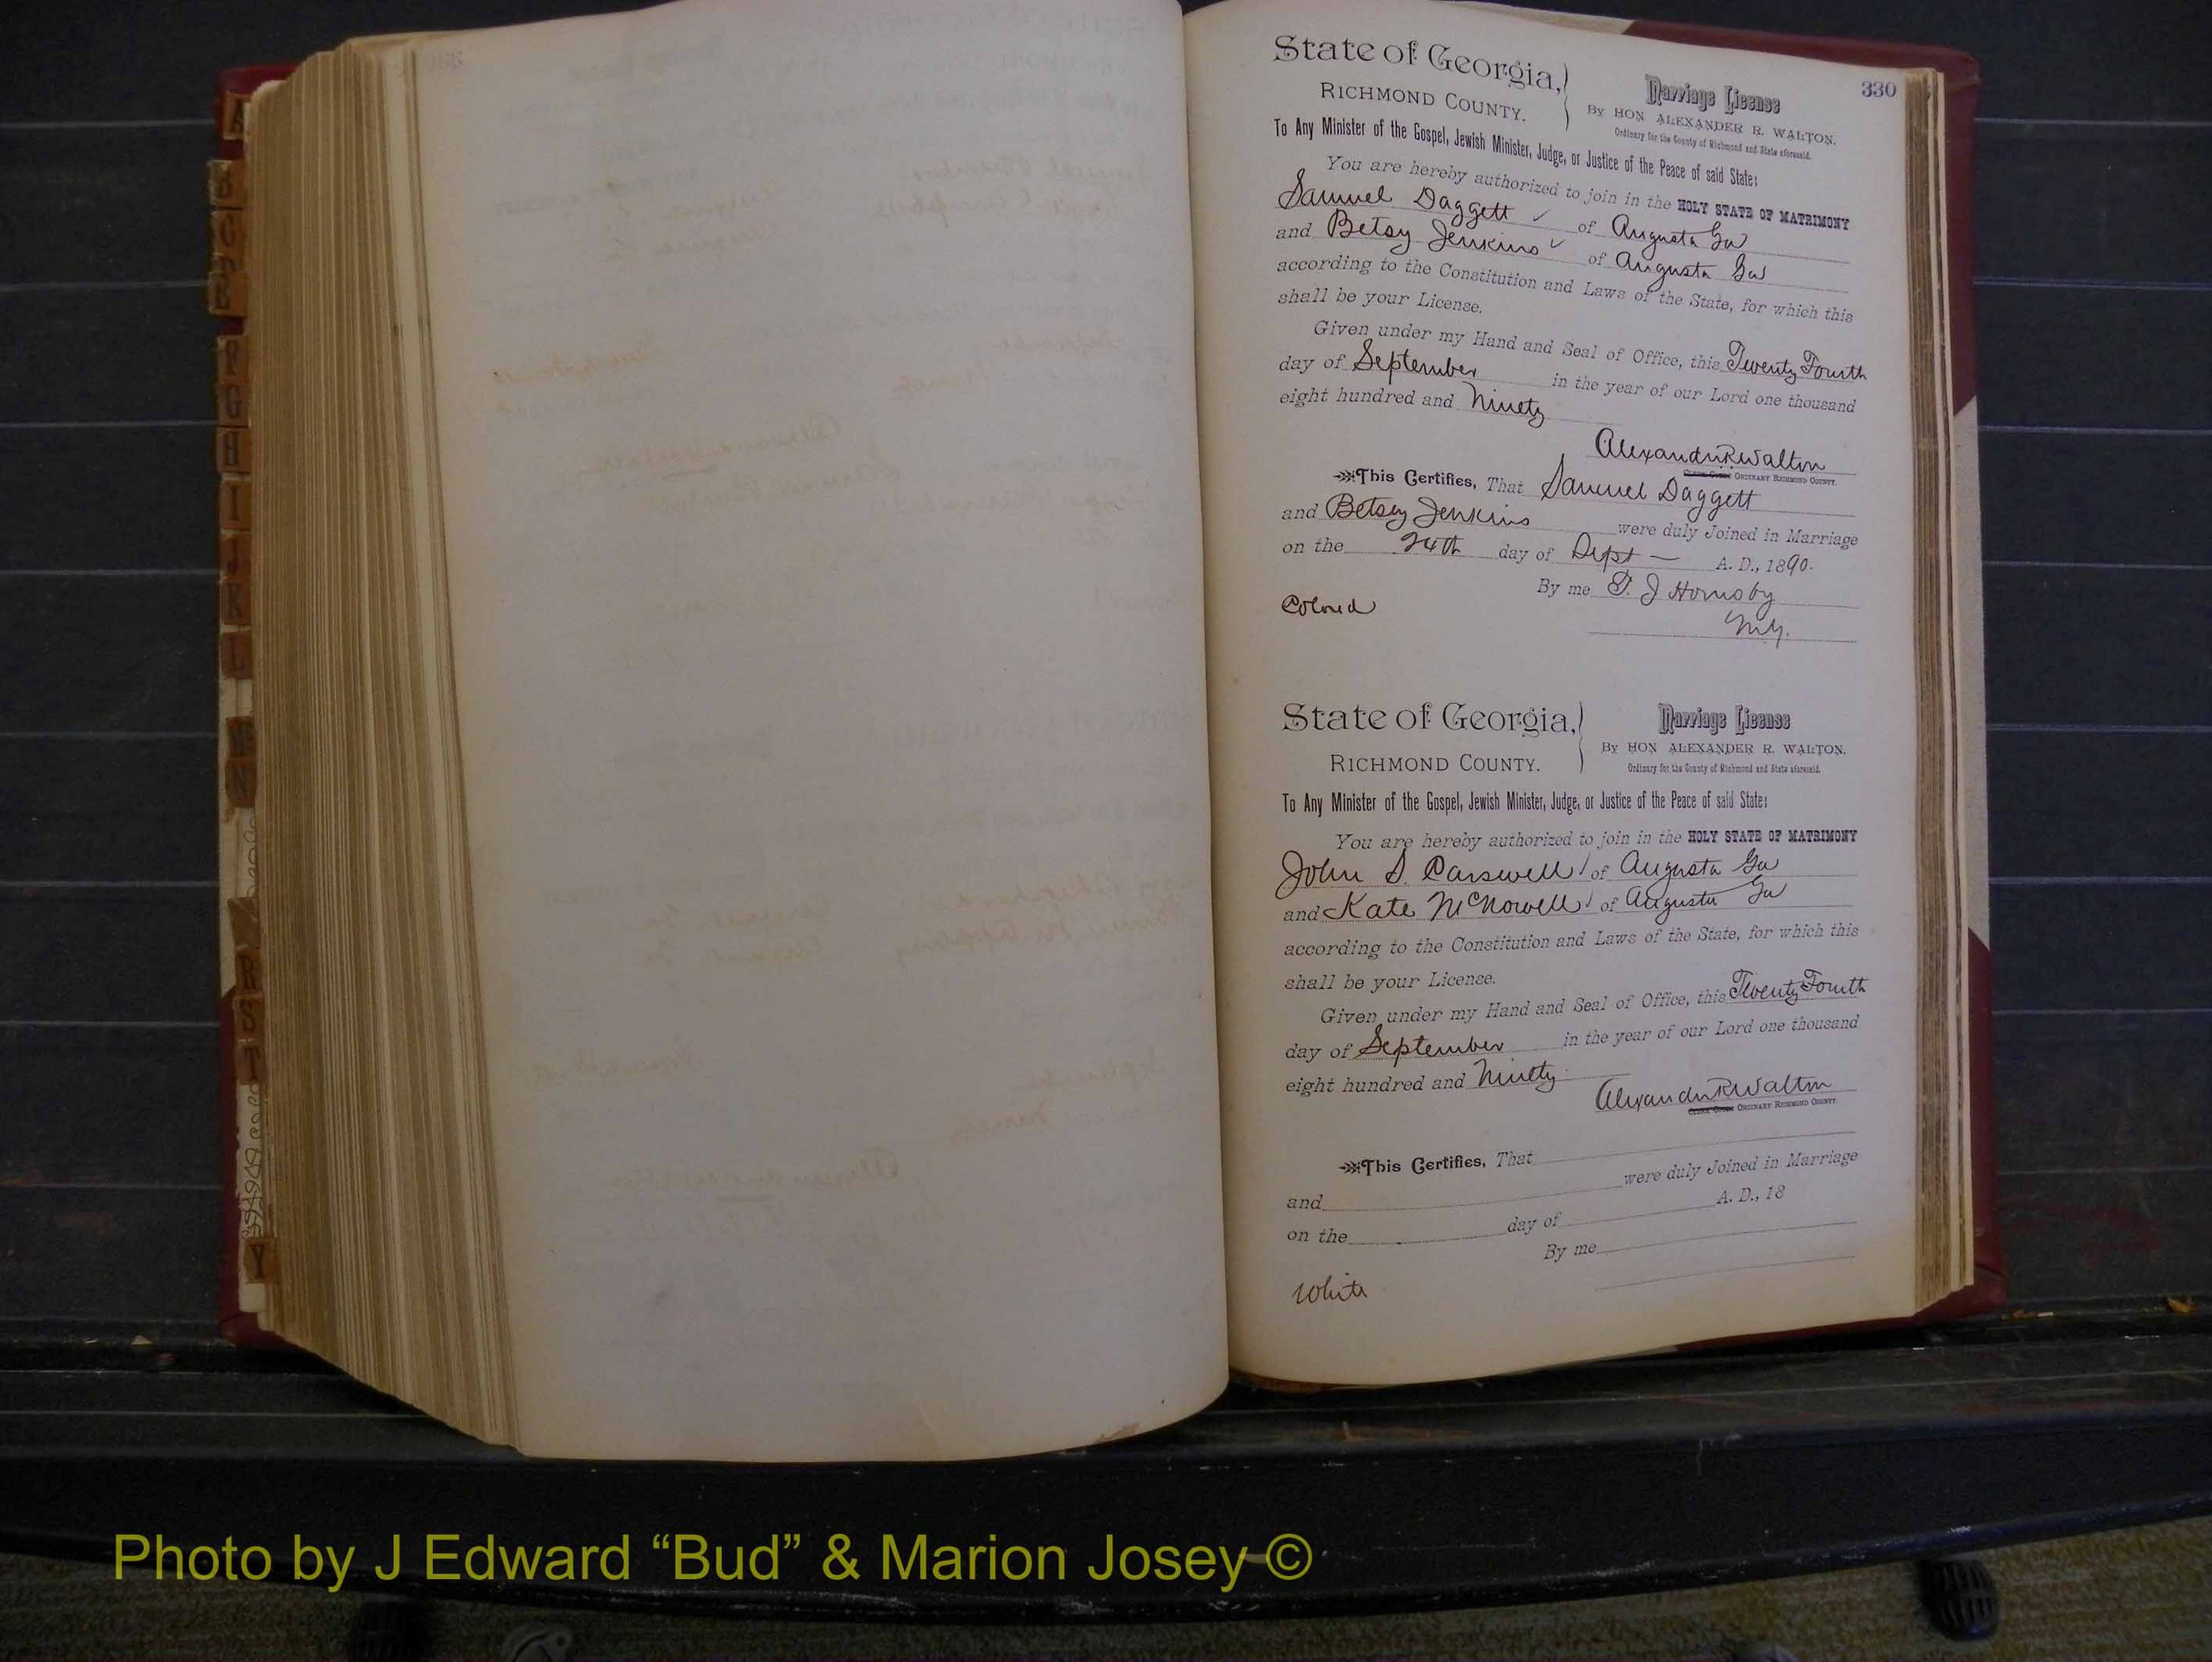 330
State of Georgia,
RICHMOND COUNTY.
Marriage License
BY HON ALEXANDER R. WALTON,
Ordinary for the County of Richmond and State aforesaid.
To Any Minister of the Gospel, Jewish Minister, Judge, or Justice of the Peace of said State:
You are hereby authorized to join in the HOLY STATE OF MATRIMONY
Samuel Daggett ✓ of Augusta Ga
and Betsy Jenkins ✓ of Augusta Ga
according to the Constitution and Laws of the State, for which this
shall be your License.
Given under my Hand and Seal of Office, this Twenty Fourth
day of September in the year of our Lord one thousand
eight hundred and Ninety
Alexander R Walton
ORDINARY RICHMOND COUNTY.
This Certifies, That Samuel Daggett
and Betsey Jenkins were duly Joined in Marriage
on the 24th day of Sept A. D., 1890.
By me J Hornsby
Colored
State of Georgia,
RICHMOND COUNTY.
Marriage License
BY HON ALEXANDER R. WALTON.
Ordinary for the County of Richmond and State aforesaid.
To Any Minister of the Gospel, Jewish Minister, Judge, or Justice of the Peace of said State:
You are hereby authorized to join in the HOLY STATE OF MATRIMONY
John S. Carswell of Augusta Ga
and Kate McNowell of Augusta Ga
according to the Constitution and Laws of the State, for which this
shall be your License.
Given under my Hand and Seal of Office, this Twenty Fourth
day of September in the year of our Lord one thousand
eight hundred and Ninety
Alexander R Walton
ORDINARY RICHMOND COUNTY.
This Certifies, That
and were duly Joined in Marriage
on the day of A. D., 18
By me
White
A
B
C
D
E
F
G
H
I
J
K
L
N
R
S
T
Y
Photo by J Edward “Bud” & Marion Josey ©